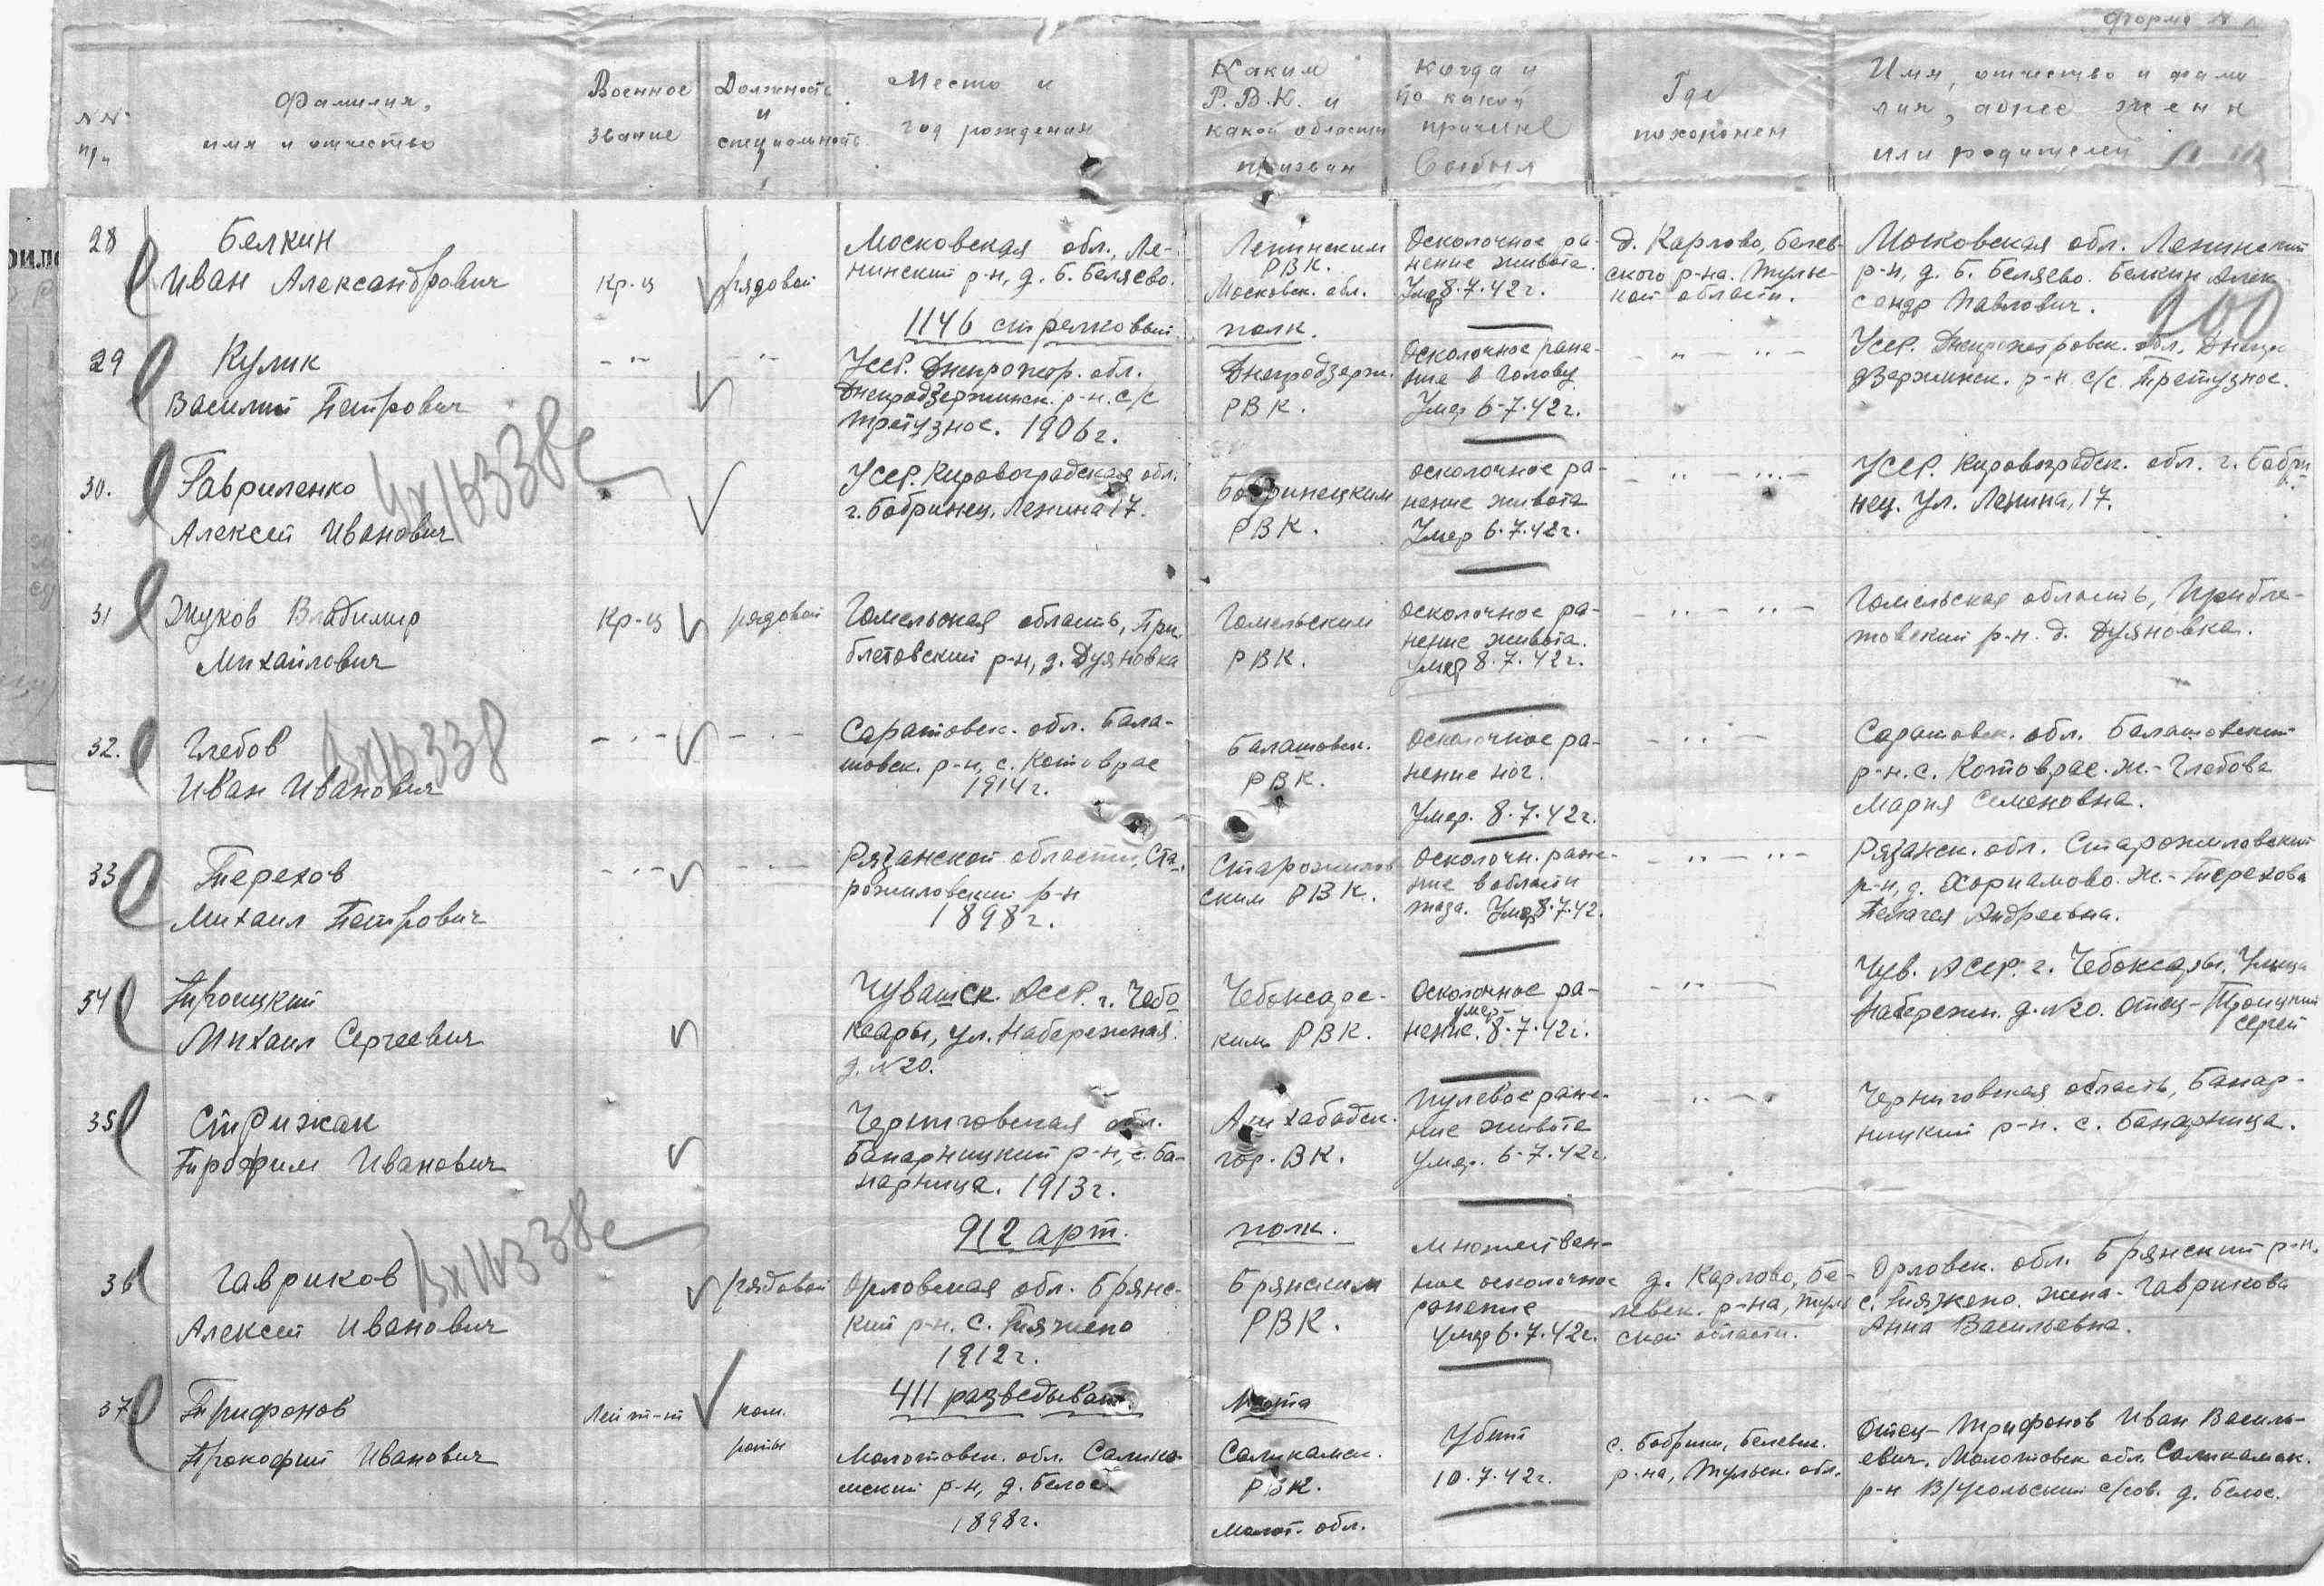 Форма №1
№№ п/п
Фамилия,
имя и отчество
Военное
звание
Должность
и
специальность
Место и
год рождения
Каким
Р.В.К. и
какой области
призван
Когда и
по какой
причине
выбыл
Где
похоронен
Имя, отчество и фами
лия, адрес жены
или родителей
28
Белкин
Иван Александрович
Кр-ц
рядовой
Московская обл., Ле-
нинский р-н, д. Б. Беляево.
Ленинским
РВК.
Московск. обл.
Осколочное ра-
нение живота.
Умер 8.7.42г.
д. Карлово, Белев-
ского р-на. Туль-
кой области.
Московская обл. Ленинский
р-н, д. Б. Беляево. Белкин Алек
сандр Павлович.
200
1146 стрелковый
полк.
29
Кулик
Василий Петрович
-"-
"
УССР. Днепропетр. обл.
Днепродзержинск. р-н. с/с
Тритузное. 1906г.
Днепродзерж.
РВК.
Осколочное ране-
ние в голову
Умер 6-7-42г.
- " - " -
УССР. Днепропетровск. обл. Днепро
дзержинск. р-н с/с Тритузное.
30.
Гавриленко
Алексей Иванович
Вх 16338с
УССР. Кировоградская обл.
г. Бобринец, Ленина 17.
Бобринецким
РВК.
осколочное ра-
нение живота
Умер 6.7.42г.
- " - " -
УССР. Кировоградск. обл. г. Бобри
нец. ул. Ленина, 17.
31
Жуков Владимир
Михайлович
Кр-ц
рядовой
Гомельская область, При
блетовский р-н, д. Дуяновка
Гомельским
РВК.
осколочное ра-
нение живота.
умер 8.7.42г.
- " - " -
Гомельская область, Прибле-
товский р-н. д. Дуяновка.
32.
Глебов
Иван Иванович
Вх 16338
- " -
- " -
Саратовск. обл. Бала-
шовск. р-н, с. Котоврас
1914г.
Балашовск.
РВК.
Осколочное ра-
нение ног.
Умер. 8.7.42г.
- " -
Саратовск. обл. Балашовский
р-н. с. Котоврас. ж.- Глебова
Мария Семеновна.
33
Терехов
Михаил Петрович
- " -
- " -
Рязанской области, Ста-
рожиловский р-н
1898г.
Старожилов
ским РВК.
Осколочн. ране-
ние в области
таза. Умер 8.7.42.
- " - " -
Рязанск. обл. Старожиловский
р-н, д. Хорнамово. ж.- Терехова
Пелагея Андреевна.
34
Троицкий
Михаил Сергеевич
Чувашск. АССР. г. Чебо
ксары, ул. Набережная
д. №20.
Чебоксарс-
ким РВК.
Осколочное ра-
нение. умер 8.7.42г.
- " -
Чув. АССР. г. Чебоксары, Улица
Набережн. д. №20. Отец - Троицкий
Сергей
35
Стрижак
Трофим Иванович
Черниговская обл.
Банарницкий р-н, с. Ба-
нарница. 1913г.
Ашхабадск.
гор. ВК.
Пулевое ране-
ние живота
умер. 6.7.42г.
- " -
Черниговская область, Банар-
ницкий р-н. с. Банарница.
912 арт.
полк.
36
Гавриков
Алексей Иванович
Вх 16338с
рядовой
Орловская обл. Брянс-
кий р-н. с. Тяжено
1912г.
Брянским
РВК.
множествен-
ное осколочное
ранение
умер 6.7.42г.
д. Карлово, Бе-
левск. р-на, Туль
ской области.
Орловск. обл. Брянский р-н.
с. Тяжено. жена - Гаврикова
Анна Васильевна.
411 разведыват.
Рота
37
Трифонов
Прокофий Иванович
Лейт-т
ком.
роты
Молотовск. обл. Солика-
мский р-н, д. Белое.
1898г.
Соликамск.
РВК.
Молот. обл.
Убит
10.7.42г.
с. Бобрики, Белевск.
р-на, Тульск. обл.
Отец - Трифонов Иван Василь-
евич. Молотовск обл. Соликамск.
р-н В/Усольский с/сов. д. Белое.